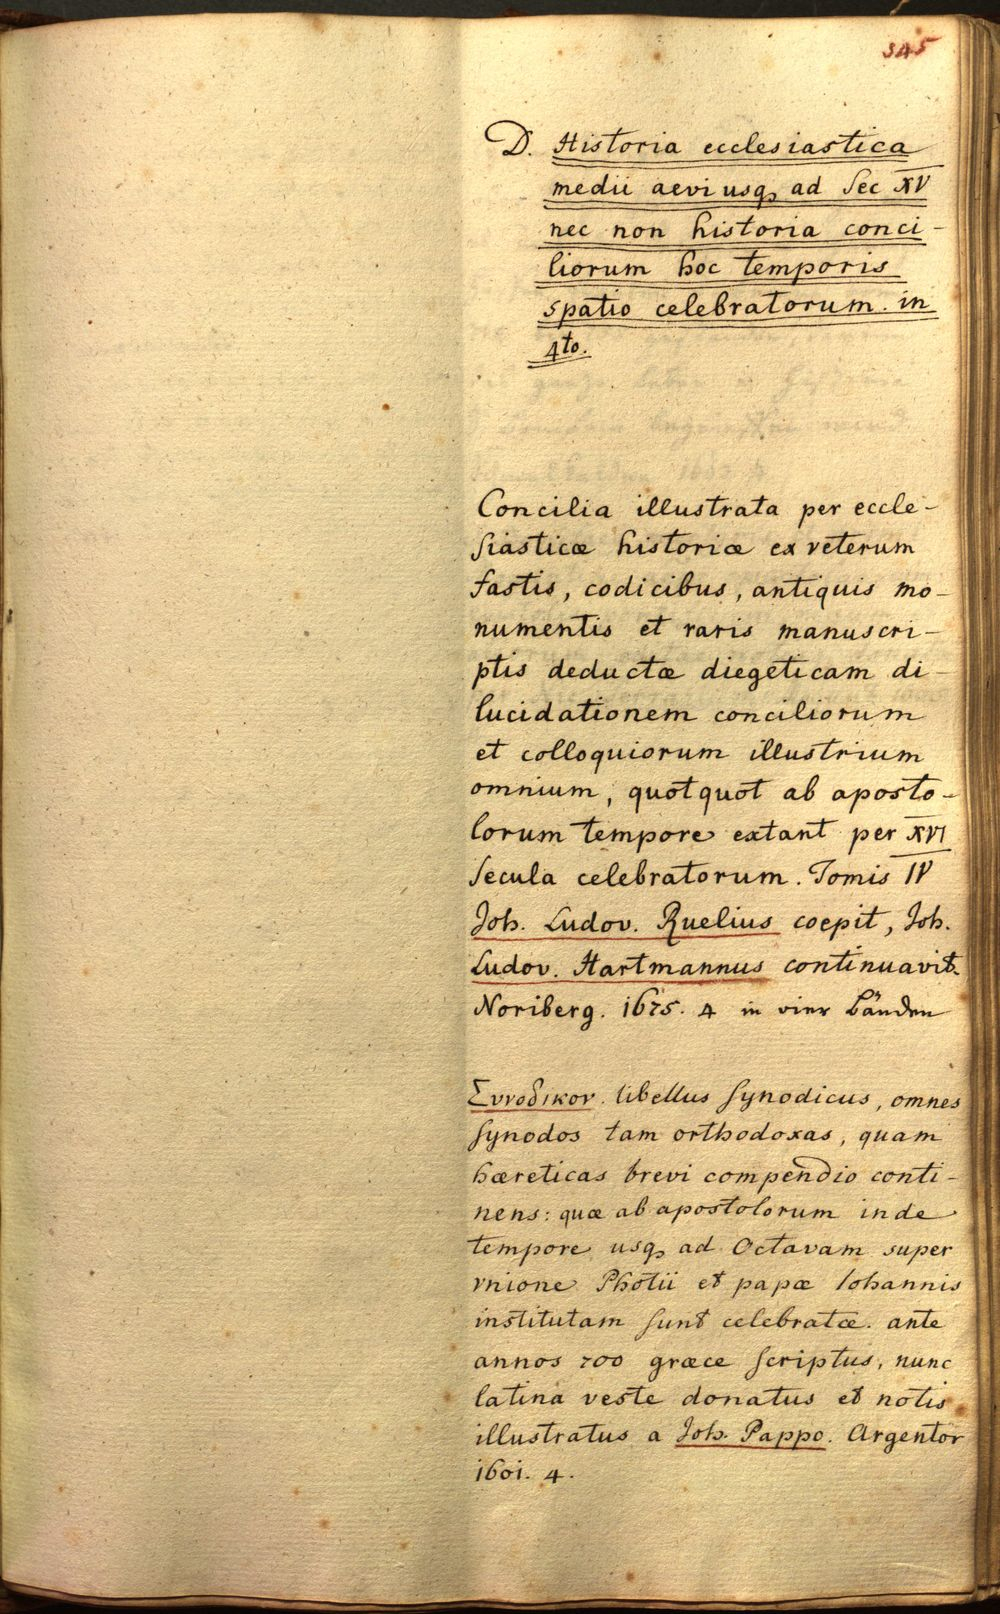 345
D. Historia ecclesiastica
medii aevi usq ad Sec XV
nec non historia conci-
liorum hoc temporis
spatio celebratorum. in
4to.
Concilia illustrata per eccle-
siasticæ historiæ ex veterum
fastis, codicibus, antiquis mo-
numentis et raris manuscri-
ptis deductæ diegeticam di-
lucidationem conciliorum
et colloquiorum illustrium
omnium, quotquot ab aposto-
lorum tempore extant per XVI
secula celebratorum. Tomis IV
Joh. Ludov. Ruelius coepit, Joh.
Ludov. Hartmannus continuavit.
Noriberg. 1675. 4 in vier Bänden
Συνοδικον. libellus synodicus, omnes
synodos tam orthodoxas, quam
hæreticas brevi compendio conti-
nens: quæ ab apostolorum inde
tempore usq ad Octavam super
vnione Photii et papæ Iohannis
institutam sunt celebratæ. ante
annos 700 græce scriptus, nunc
latina veste donatus et notis
illustratus a Joh. Pappo. Argentor
1601. 4.